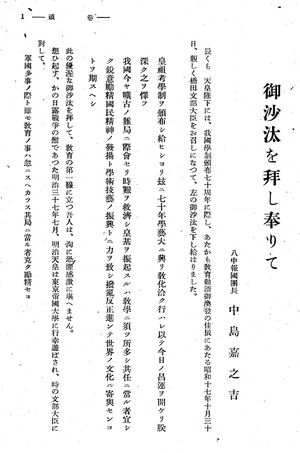 1 ― 卷頭 ―
御沙汰を拜し奉りて
八中報國團長 中島嘉之吉
畏くも 天皇陛下には、我國學制頒布七十周年に際し、あたかも教育勅語御渙發の佳辰にあたる昭和十七年十月三十
日、親しく橋田文部大臣をお召しになつて、左の御沙汰を下し給はりました。
皇祖考學制ヲ頒布シ給ヒショリ玆ニ七十年學藝大ニ興リ敎化洽ク行ハレ以テ今日ノ昌運ヲ開ケリ朕
深ク之ヲ懌フ
我國今ヤ曠古ノ難局ニ際會セリ時艱ヲ救濟シ皇基ヲ振起スルハ敎學ニ須ツ所多シ其任ニ當ル者宜シ
ク鋭意勵精國民精神ノ發揚ト學術技藝ノ振興トニ力ヲ致シ撥亂反正進ンテ世界ノ文化ニ寄與センコ
トヲ期スヘシ
此の優渥な御沙汰を拜して、敎育の第一線に立つ吾人は、洵に恐懼感激に堪へません。
想ひ起す、かの日露戰爭の酣であつた明治三十七年七月、明治天皇は東京帝國大學に行幸遊ばされ、時の文部大臣に
對して、
軍國多事ノ際ト雖モ敎育ノ事ハ忽ニスヘカラス其局ニ當ル者克ク勵精セヨ